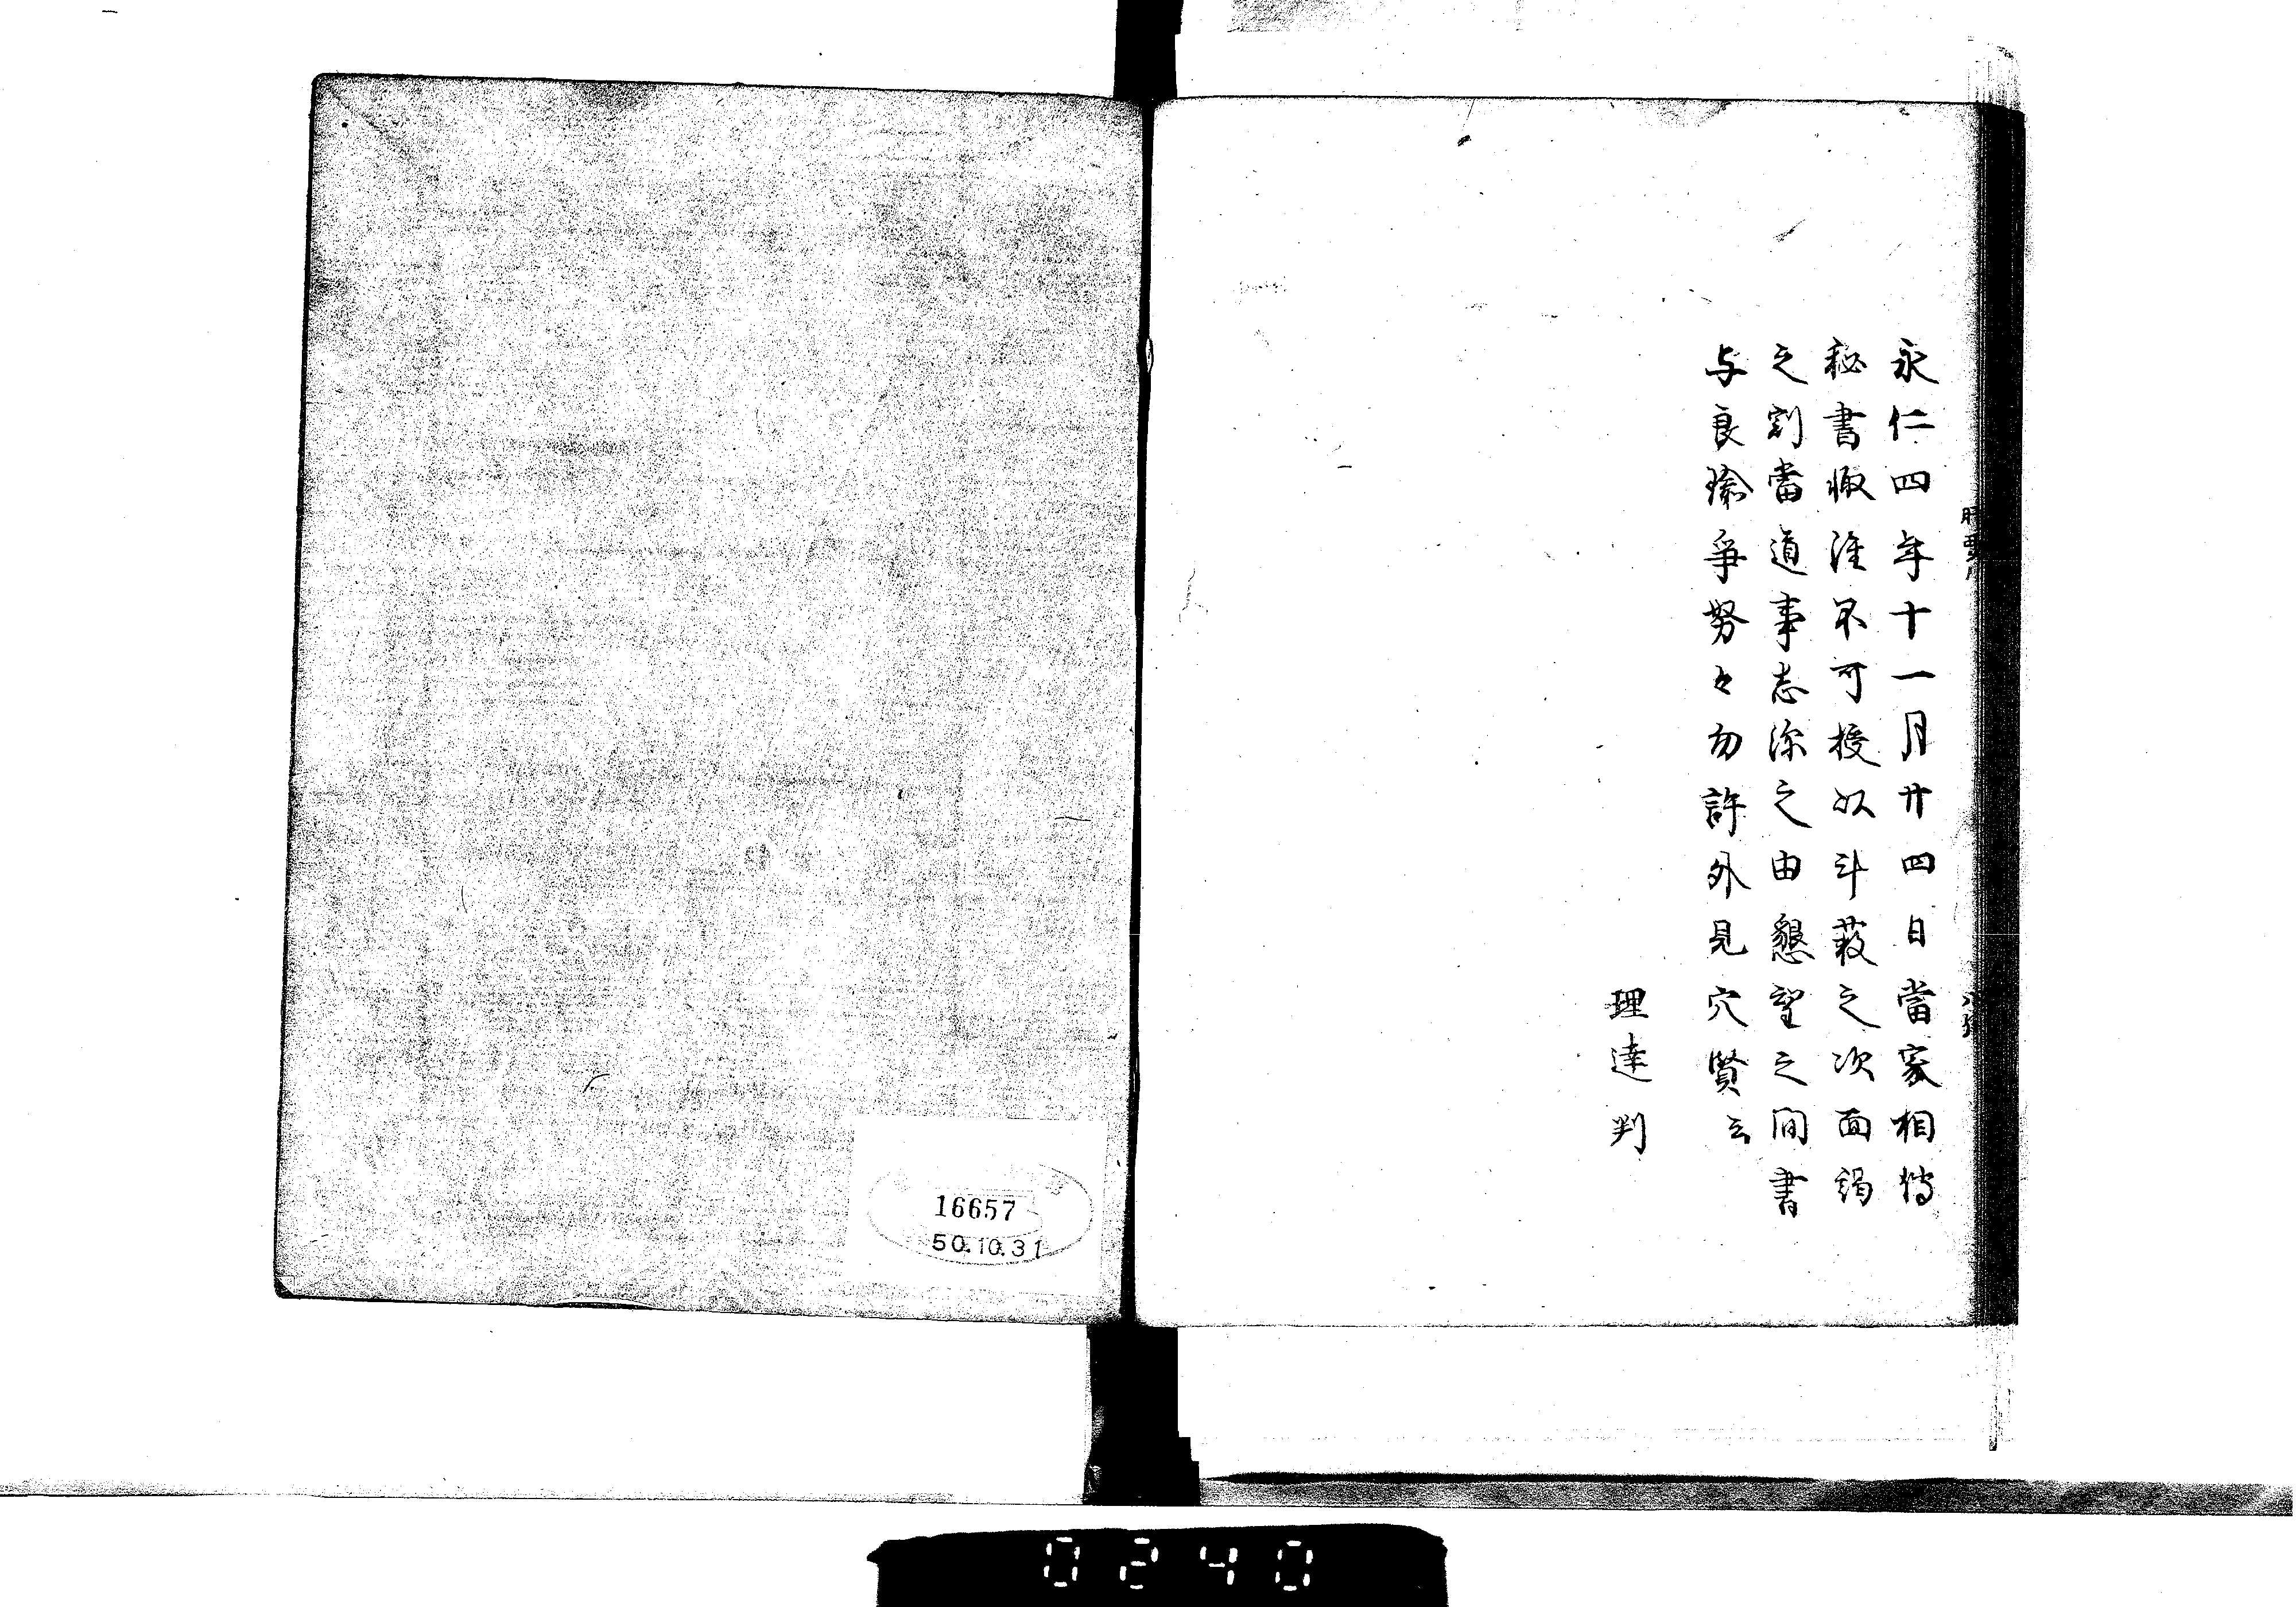 永仁四年十一月廿四日當家相傳
秘書輙雖不可授以斗藪之次面謁
之刻當道事志深之由懇望之間書
与良瑜爭努々勿許外見穴賢云
理達判
16657
50.10.31
0240